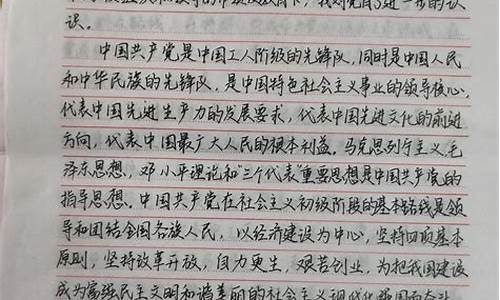 教育下，我对党有了进一步的认
识。
中国共产党是中国工人阶级的先锋队，同时是中国人民
和中华民族的先锋队，是中国特色社会主义事业的领导核心，
代表中国先进生产力的发展要求，代表中国先进文化的前进
方向，代表中国最广大人民的根本利益。马克思列宁主义、毛
泽东思想，邓小平理论和“三个代表”重要思想是中国共产党的
指导思想。中国共产党在社会主义初级阶段的基本路线是领
导和团结全国各族人民，以经济建设为中心，坚持四项基本
原则，坚持改革开放，自力更生，艰苦创业，为把我国建设
成为富强民主文明和谐美丽的社会主义现代化强国而奋斗